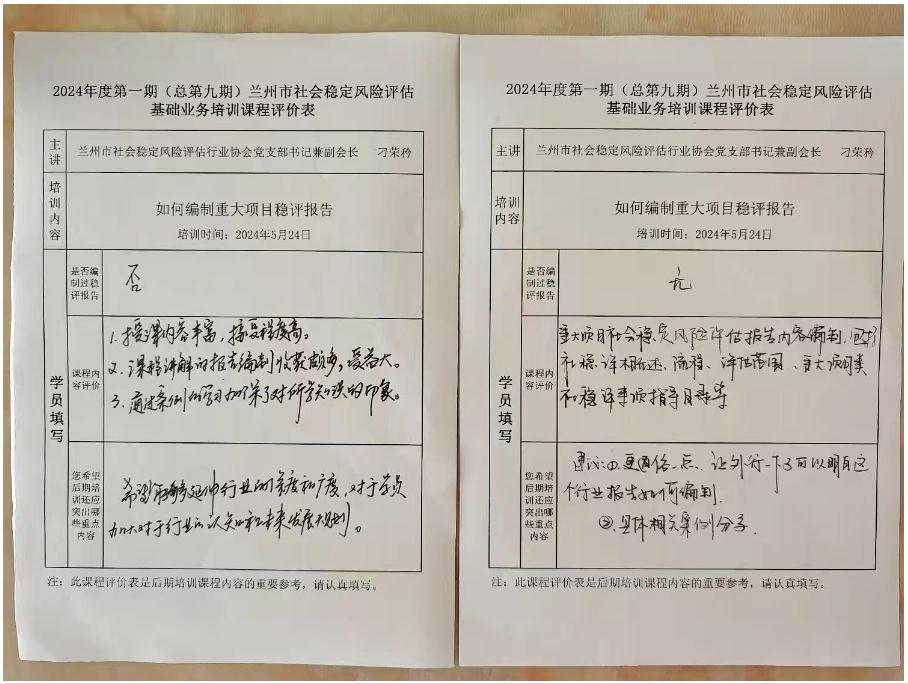 2024年度第一期（总第九期）兰州市社会稳定风险评估
基础业务培训课程评价表
主讲
兰州市社会稳定风险评估行业协会党支部书记兼副会长 刁荣矜
培训内容
如何编制重大项目稳评报告
培训时间：2024年5月24日
学员填写
是否编
制过稳
评报告
否
课程内
容评价
1. 授课内容丰富，接受程度高。
2. 课程讲解的报告编制收获颇多，受益大。
3. 通过案例的学习加深了对所学知识的印象。
您希望
后期培
训还应
突出哪
些重点
内容
希望能够延伸行业的深度和广度，对于学员
加大对于行业的认知和未来发展大规划。
注：此课程评价表是后期培训课程内容的重要参考，请认真填写。
2024年度第一期（总第九期）兰州市社会稳定风险评估
基础业务培训课程评价表
主讲
兰州市社会稳定风险评估行业协会党支部书记兼副会长 刁荣矜
培训
内容
如何编制重大项目稳评报告
培训时间：2024年5月24日
学员填写
是否编
制过稳
评报告
课程内
容评价
重大项目社会稳定风险评估报告内容编制，包括
社稳评概述、流程、评估范围、重大项目类
社稳评事项指导目录等
您希望
后期培
训还应
突出哪
些重点
内容
建议：①.更通俗一点、让外行一下子可以明白这
个行业报告如何编制.
②.具体相关案例分享.
注：此课程评价表是后期培训课程内容的重要参考，请认真填写.